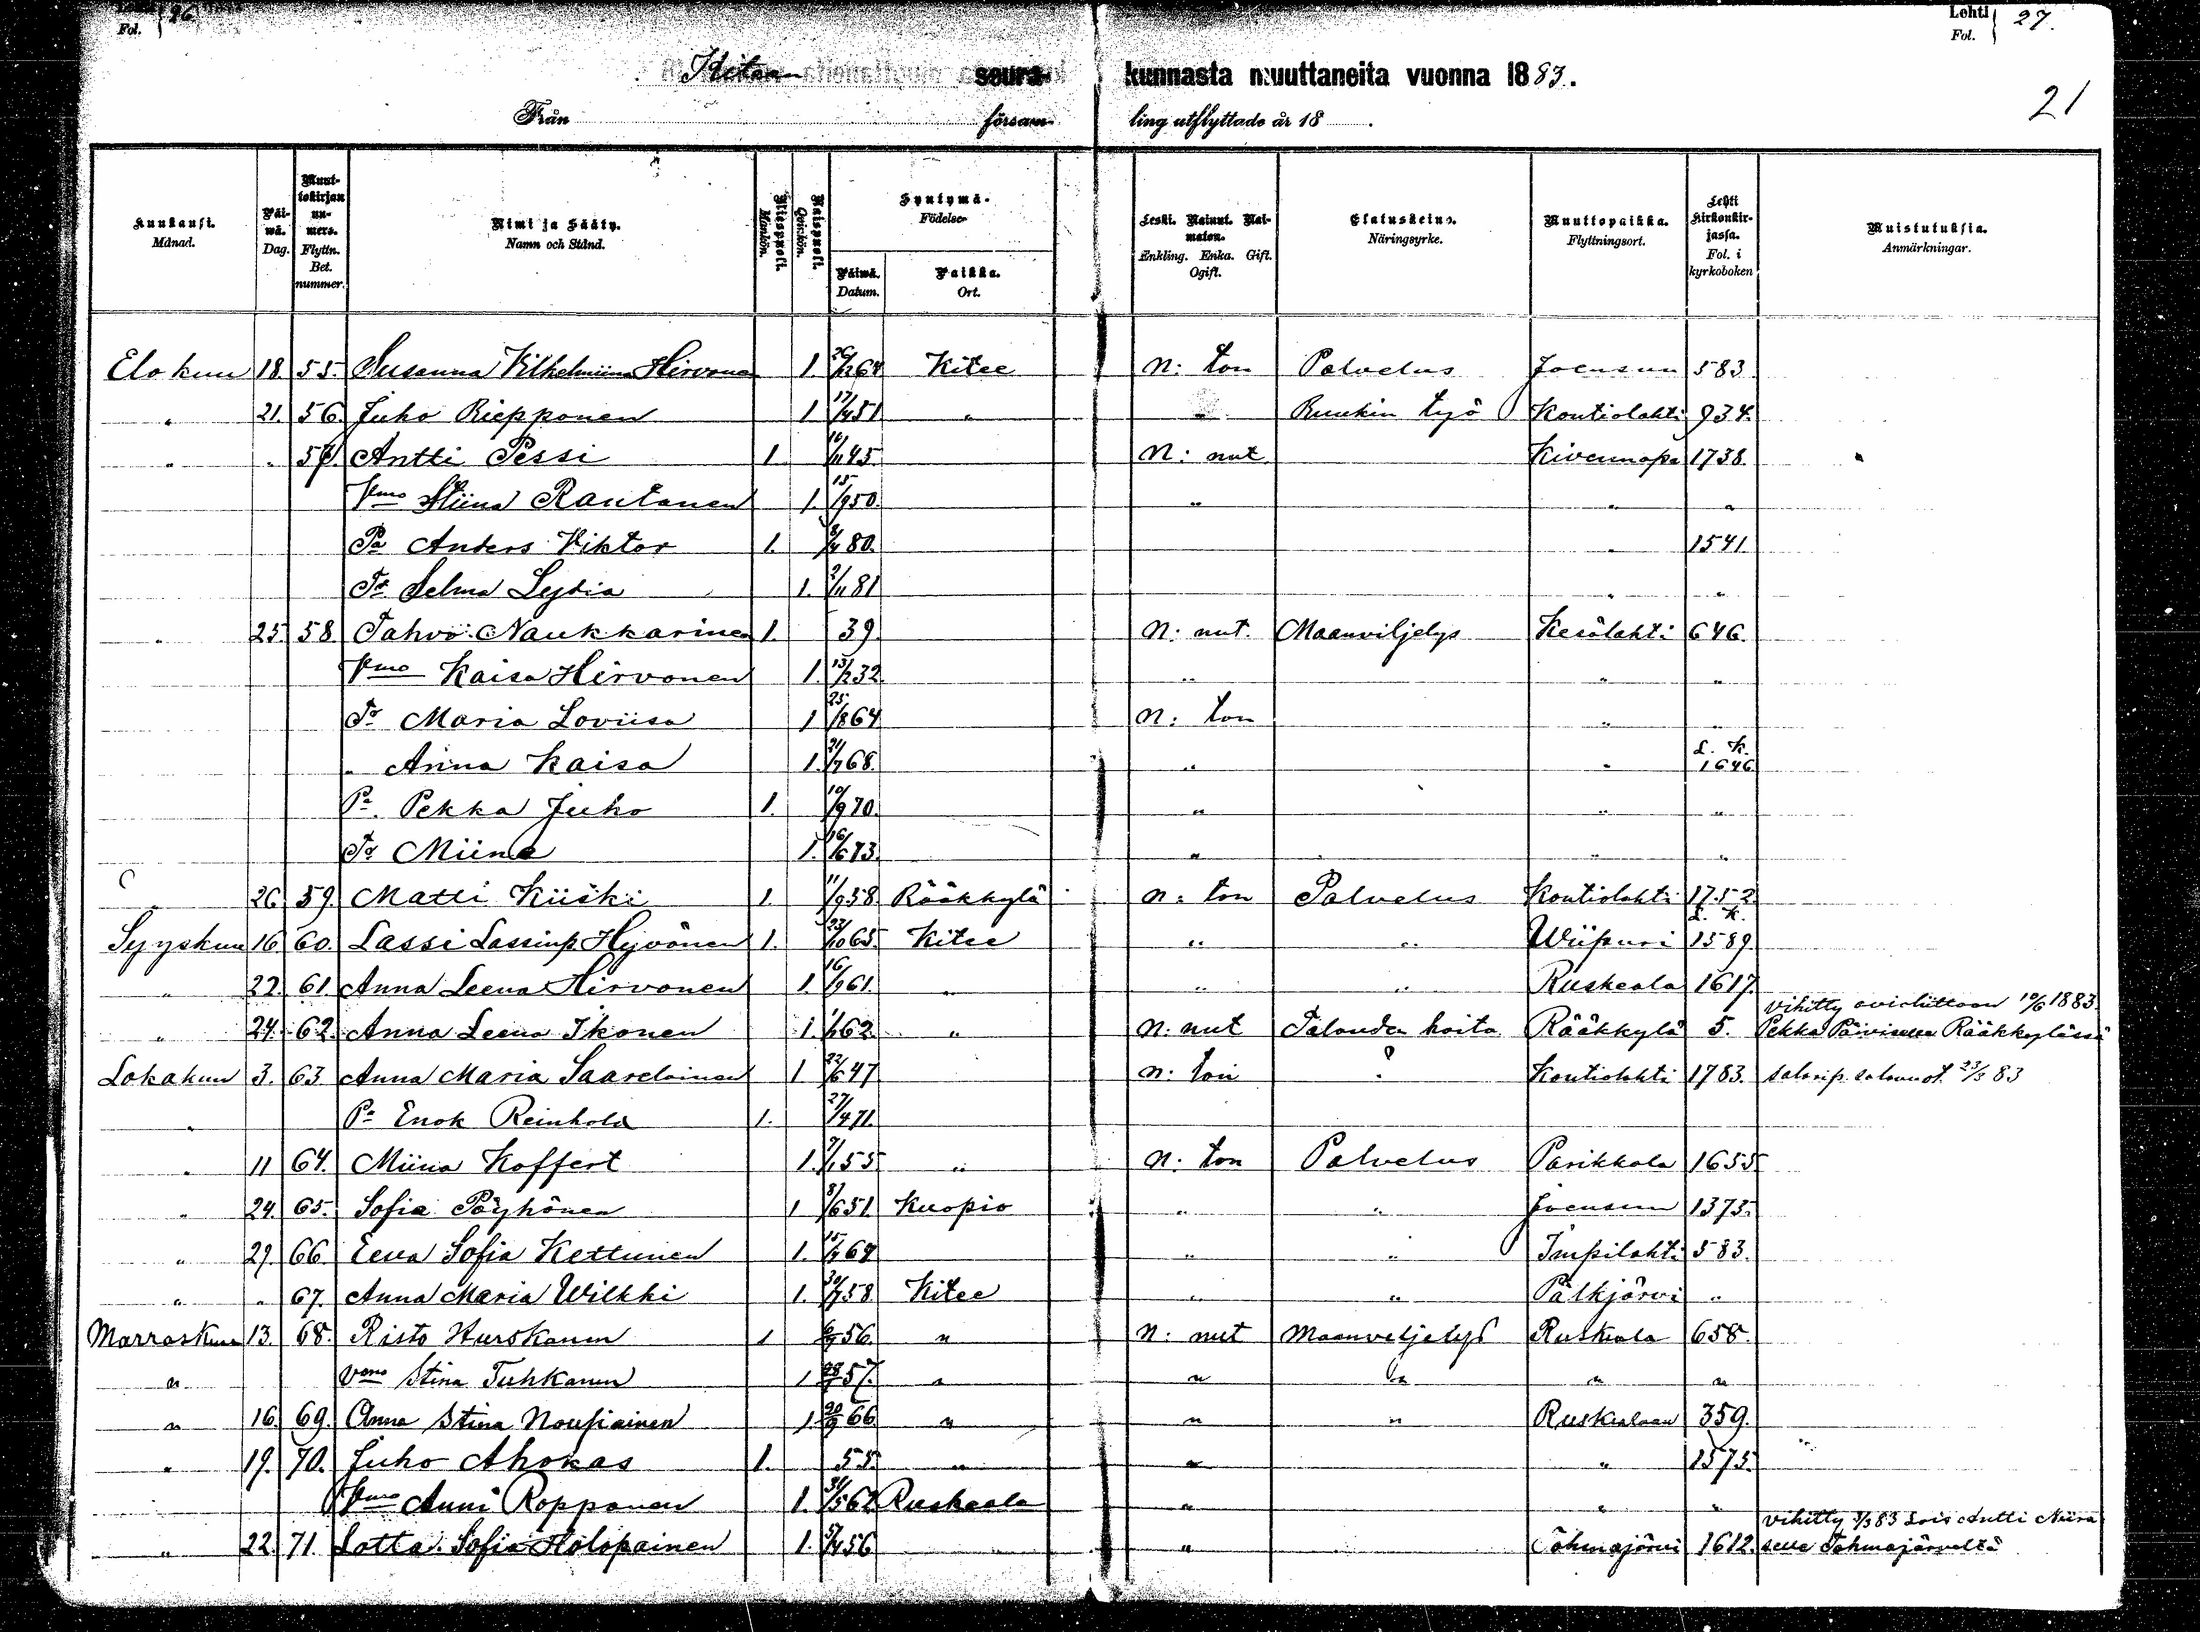 Fol. 26
Lehti 27.
Fol.
Kiteen seurakunnasta muuttaneita vuonna 1883.
21
Från församling utflyttade år 18 .
Kuukausi. Månad. Päiwä. Dag. Muuttokirjan numero. Flyttn. Bet. nummer. Nimi ja Sääty. Namn och Stånd. Miespuoli. Mankön. Naispuoli. Qvinkön. Syntymä- Födelse- Päiwä. Datum. Paikka. Ort. Leski. Nainut. Naimaton. Enkling. Enka. Gift. Ogift. Elatuskeino. Näringsyrke. Muuttopaikka. Flyttningsort. Lehti kirkonkirjassa. Fol. i kyrkoboken Muistutuksia. Anmärkningar.
Elokuu 18. 55. Susanna Vilhelmiina Hirvonen 1. 26/12 64 Kitee n: ton Palvelus Joensuu 583.
" 21. 56. Juho Riepponen 1 17/4 51 " " Ruukin työ Kontiolahti 934.
" " 57. Antti Pessi 1. 16/11 45. N: nut Kivennapa 1738.
Vmo Stiina Rautanen 1. 15/9 50. " " "
Pa Anders Viktor 1. 80. " 1541
Tr Selma Lydia 1. 2/11 81 " "
" 25. 58. Tahvo Naukkarinen 1. 39. N: nut. Maanviljelys Kesälahti 646.
Vmo Kaisa Hirvonen 1. 13/12 32. " " "
Tr Maria Loviisa 1 25/8 64 N: ton " "
" Anna Kaisa 1. 21/7 68. " " L. K. 1646
Pa. Pekka Juho 1. 10/9 70. " " "
Tr Miina 1. 16/6 73. " " "
" 26 59. Matti Kiiski 1. 11/9 58. Rääkkylä n: ton Palvelus Kontiolahti 1752
Syyskuu 16. 60. Lassi Lassinp. Hyvönen 1. 23/10 65 Kitee " " Wiipuri L. K. 1589.
" 22. 61. Anna Leena Hirvonen 1. 16/9 61. " " " Ruskeala 1617.
" 24. 62. Anna Leena Ikonen 1. 62. " N: nut Talouden hoito Rääkkylä 5. vihitty avioliittoon 10/6 1883. Pekka Päiviselle Rääkkylässä
Lokakuu 3. 63 Anna Maria Saarelainen 1 22/6 47 n: ton " Kontiolahti 1783. salavuot. 23/3 83
" Pa Enok Reinhold 1. 27/4 71.
" 11 64. Miina Koffert 1. 55 " n: ton Palvelus Parikkala 1655
" 24. 65. Sofia Pöyhönen 1 8/6 51. Kuopio " " Joensuu 1373.
" 29. 66. Eeva Sofia Kettunen 1. 64 " " Impilahti 583.
" " 67. Anna Maria Wilkki 1. 30/7 58. Kitee " " Pälkjärvi "
Marraskuu 13. 68. Risto Hurskanen 1 56. " N: nut maanviljelys Ruskeala 658.
" Vmo Stina Tuhkanen 1 57. " " " " "
" 16. 69. Anna Stina Nousiainen 1. 20/9 66 " " " Ruskealaan 359.
" 19. 70. Juho Ahokas 1. 55. " " " 1575.
Vmo Anni Ropponen 1. 31/5 62 Ruskeala " " "
" 22. 71 Lotta Sofia Holopainen 1. 56 " Tohmajärvi 1612. vihitty 83 Lois Antti Niiraselle Tohmajärveltä